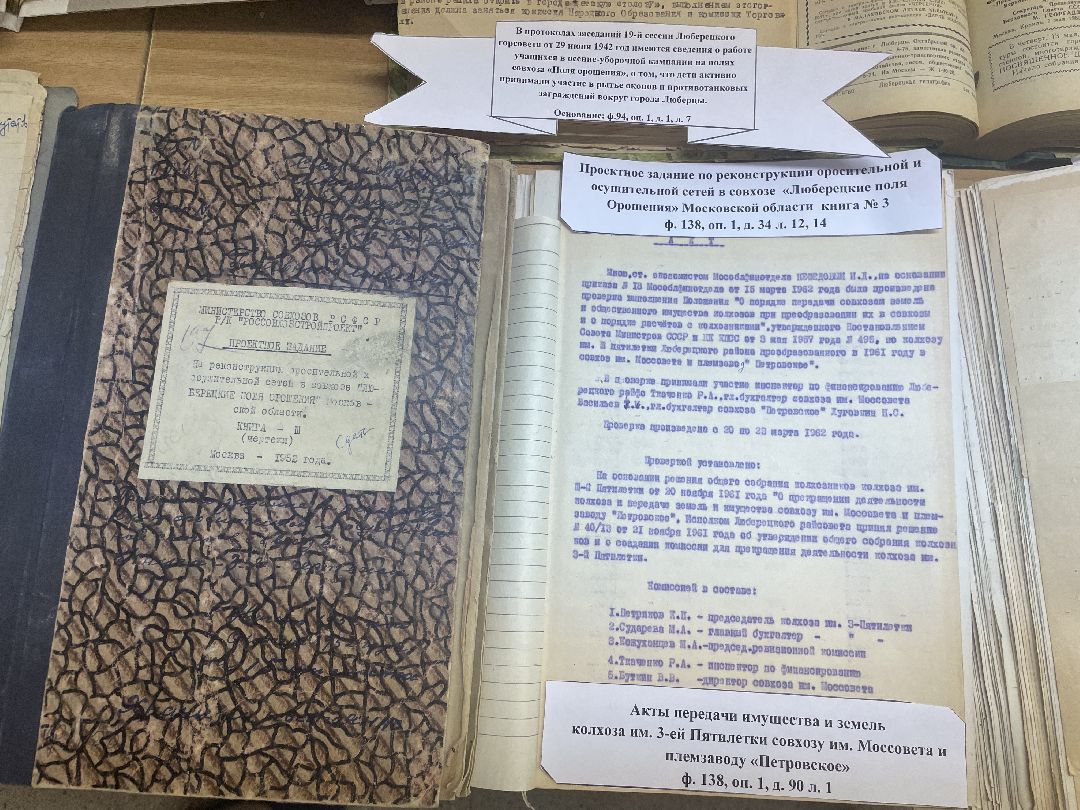 В протоколах заседаний 19-й сессии Люберецкого
горсовета от 29 июня 1942 год имеются сведения о работе
учащихся в весенне-уборочной кампании на полях
совхоза «Поля орошения», о том, что дети активно
принимали участие в рытье окопов и противотанковых
заграждений вокруг города Люберцы.
Основание: ф.94, оп. 1, д. 1, л. 7
Проектное задание по реконструкции оросительной и
осушительной сетей в совхозе «Люберецкие поля
Орошения» Московской области книга № 3
ф. 138, оп. 1, д. 34 л. 12, 14
МИНИСТЕРСТВО СОВХОЗОВ Р С Ф С Р
Р/К "РОССОВХОЗСТРОЙПРОЕКТ"
ПРОЕКТНОЕ ЗАДАНИЕ
На реконструкцию оросительной и
осушительной сетей в совхозе "ЛЮ-
БЕРЕЦКИЕ ПОЛЯ ОРОШЕНИЯ" Москов -
ской области.
КНИГА - Ш
(чертежи)
Москва - 1952 года.
А К Т
Мною, ст. экономистом Мособлфинотдела И.Д., на основании
приказа № 13 Мособлфинотдела от 15 марта 1962 года была произведена
проверка выполнения Положения "О порядке передачи совхозам земель
и общественного имущества колхозов при преобразовании их в совхозы
и о порядке расчётов с колхозниками", утвержденного Постановлением
Совета Министров СССР и ЦК КПСС от 3 мая 1957 года № 495, по колхозу
им. 3 пятилетки Люберецкого района преобразованного в 1961 году в
совхоз им. Моссовета и племзавод "Петровское".
В проверке принимали участие инспектор по финансированию Любе-
рецкого райфо Ткаченко Р.А., гл.бухгалтер совхоза им. Моссовета
Васильев, гл.бухгалтер совхоза "Петровское" Луговкин Н.С.
Проверка произведена с 20 по 23 марта 1962 года.
Проверкой установлено:
На основании решения общего собрания колхозников колхоза им.
3-й Пятилетки от 20 ноября 1961 года "О прекращении деятельности
колхоза и передаче земель и имущества совхозу им. Моссовета и плем-
заводу "Петровское", Исполком Люберецкого райсовета принял решение
№ 40/13 от 21 ноября 1961 года об утверждении общего собрания колхозни
ков и о создании комиссии для прекращения деятельности колхоза им.
3-й Пятилетки.
Комиссией в составе:
1.Петряков К.П. - председатель колхоза им. 3-Пятилетки
2.Сударева М.А. - главный бухгалтер - " -
3.Кожуханцев И.А.-председ.ревизионной комиссии
4.Ткаченко Р.А. - инспектор по финансированию
5.Буткин В.В. -директор совхоза им. Моссовета
Акты передачи имущества и земель
колхоза им. 3-ей Пятилетки совхозу им. Моссовета и
племзаводу «Петровское»
ф. 138, оп. 1, д. 90 л. 1